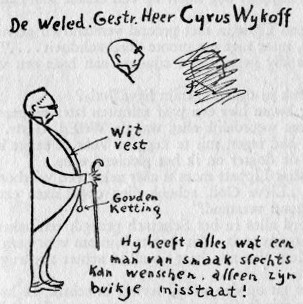 De Weled. Gestr. Heer Cyrus Wykoff
wit
vest
Gouden
Ketting
Hy heeft alles wat een
man van smaak slechts
kan wenschen, alleen zyn
buikje misstaat!